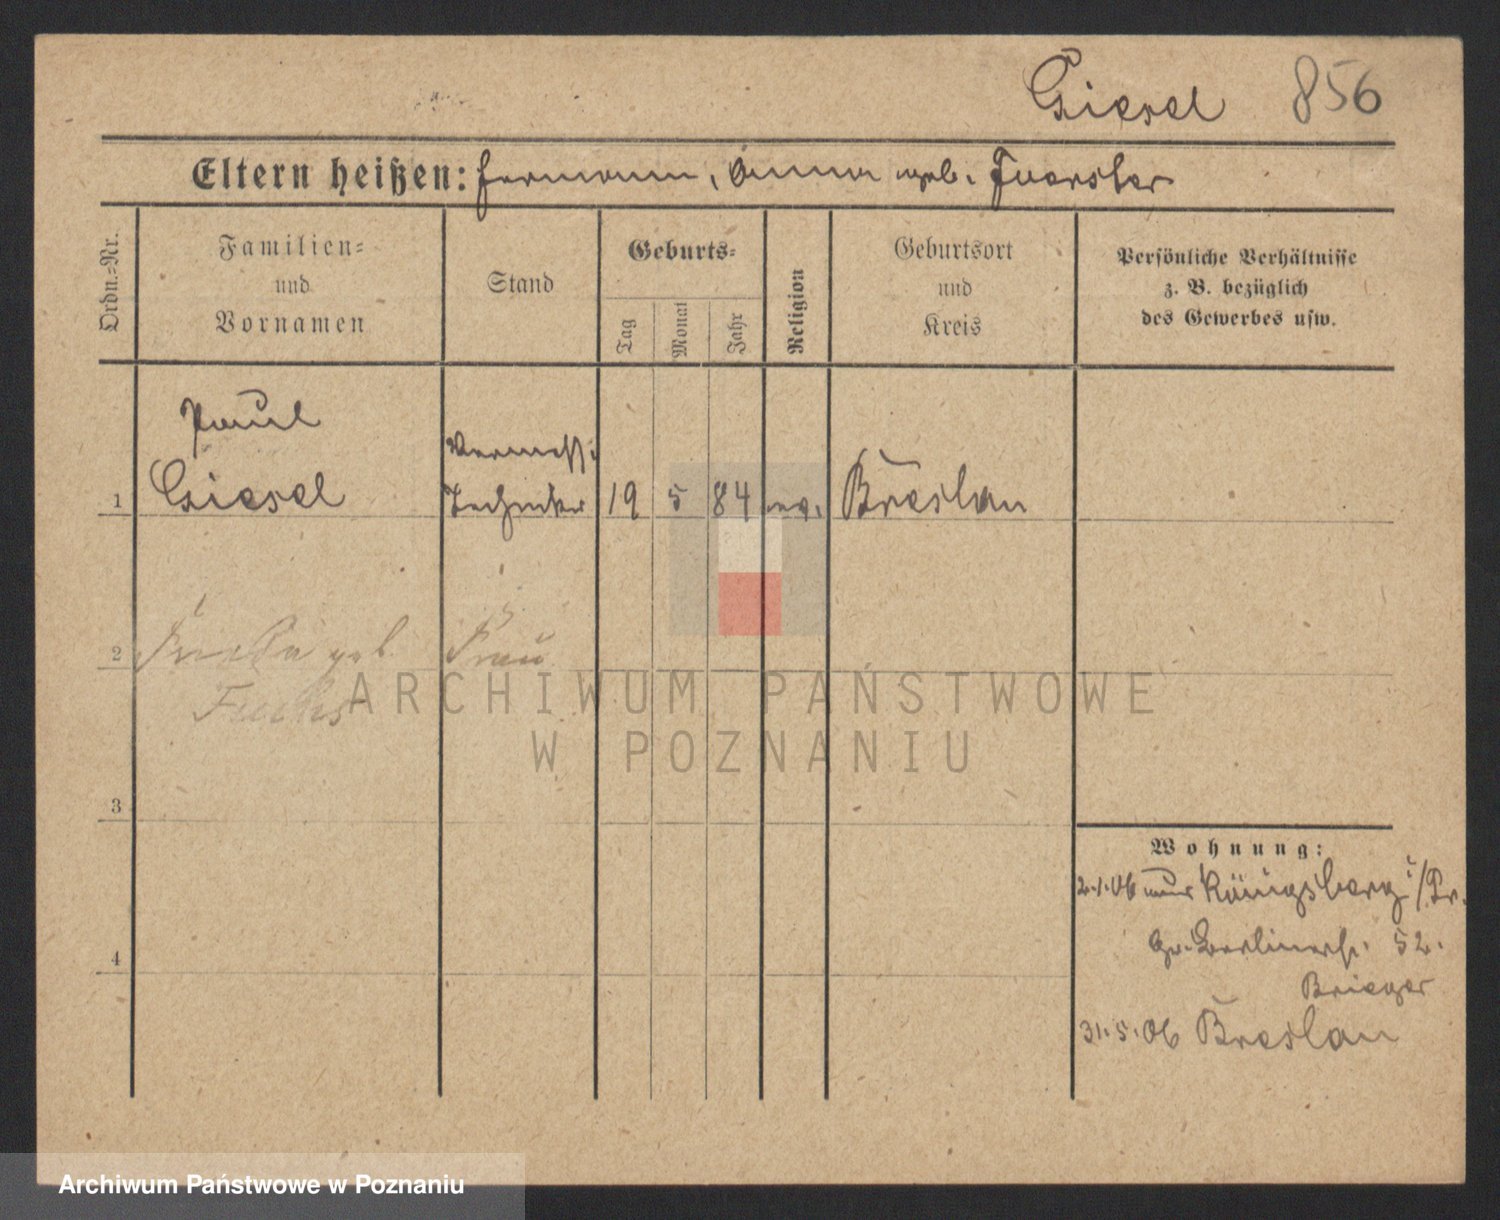 Giesel 856
Eltern heißen: Hermann, Anna geb. Foerster
Ordn.=Nr.
Familien=
und
Vornamen
Stand
Geburts=
Tag
Monat
Jahr
Religion
Geburtsort
und
Kreis
Persönliche Verhältnisse
z. B. bezüglich
des Gewerbes usw.
Paul
Vermess:
1 Giesel Techniker 19 5 84 ev. Breslau
2 geb. Frau
Fuchs
ARCHIWUM PAŃSTWOWE
W POZNANIU
3
Wohnung:
2.1.06 Königsberg i/Pr.
Gr. Berlinerst. 52.
4
Brieger
31.5.06 Breslau
Archiwum Państwowe w Poznaniu